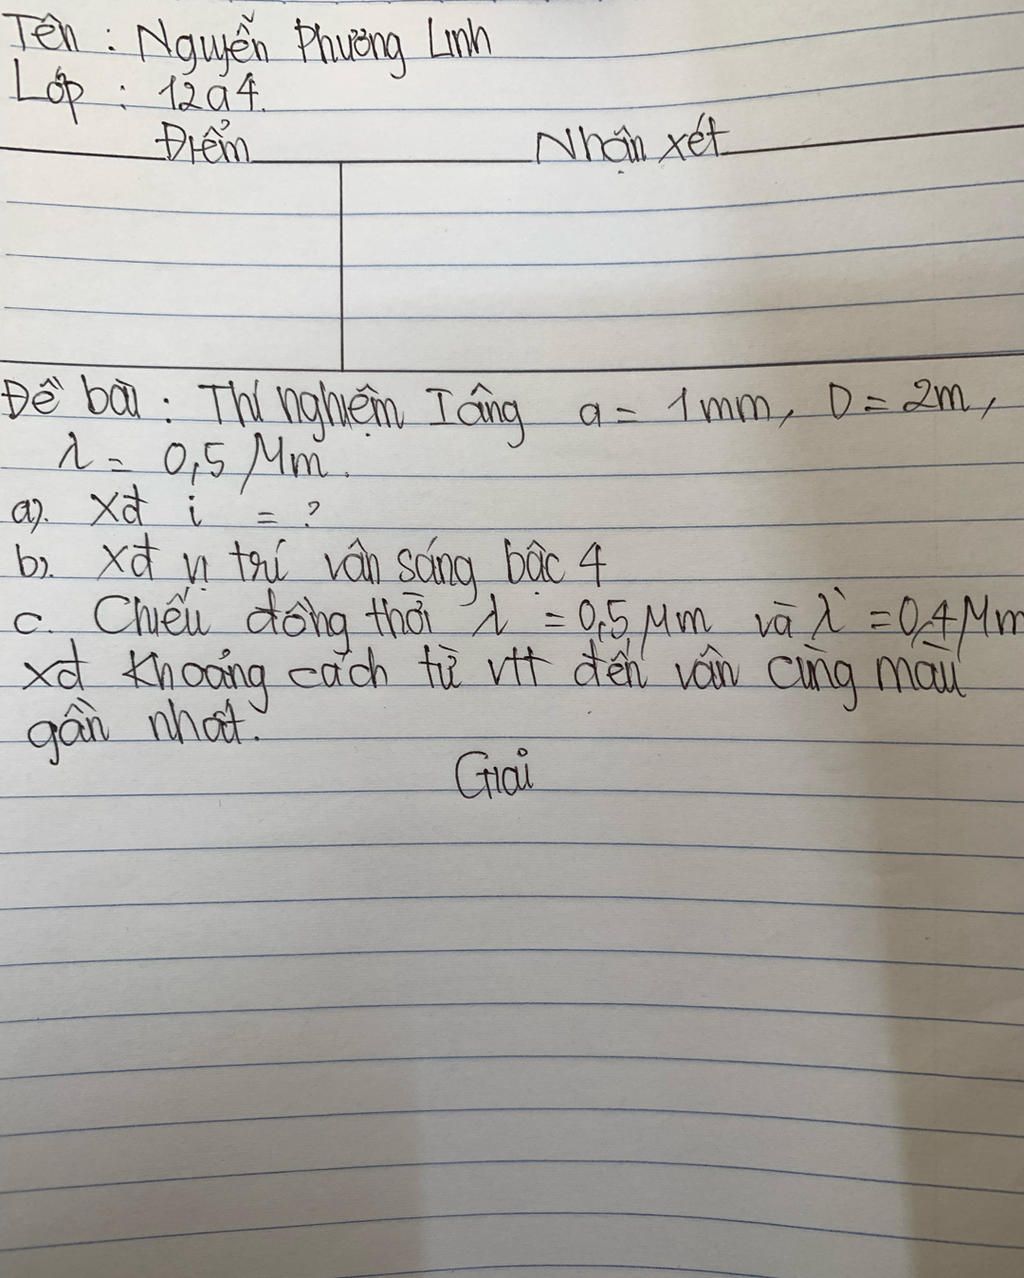 Tên : Nguyễn Phương Linh
Lớp : 12a4.
Điểm Nhận xét
Đề bài : Thí nghiệm Iâng a = 1mm, D = 2m,
λ = 0,5 Mm.
a). xđ i = ?
b). xđ vị trí vân sáng bậc 4
c. Chiếu đồng thời λ = 0,5 Mm và λ' = 0,4 Mm
xđ khoảng cách từ vtt đến vân cùng màu
gần nhất.
Giải